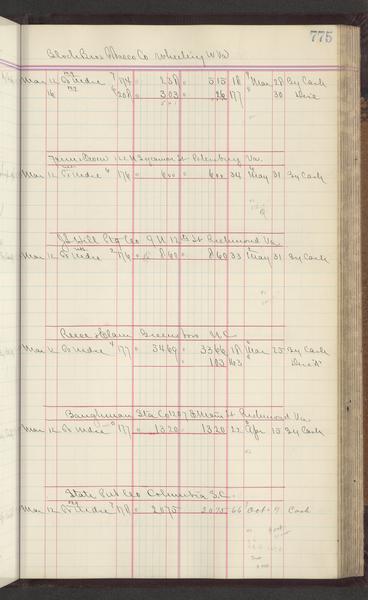 775
Bloch Bros Tobacco Co Wheeling W Va
Mar 12 To Mdse 174 " 238 " 515 18 Mar 28 By Cash
16 208 " 303 " 26 177 30 Disc
Petersburg Va.
Mar 12 To Mdse 176 " 600 " 600 34 May 31 By Cash
J L Hill Ptg Co 9 N 12th St Richmond Va.
Mar 12 To Mdse 176 " 860 " 860 33 May 31 By Cash
Reece & Elam Greensboro N.C.
Mar 12 To Mdse 177 " 3469 " 3366 18 Mar 25 By Cash
" 103 163 Disc
Baughman Sta Co 1207 E Main St Richmond Va.
Mar 12 To Mdse 177 " 1320 " 1320 22 Apr 15 By Cash
State Pub Co Columbia S.C.
Mar 12 To Mdse 178 " 2075 " 2075 66 Oct 7 Cash